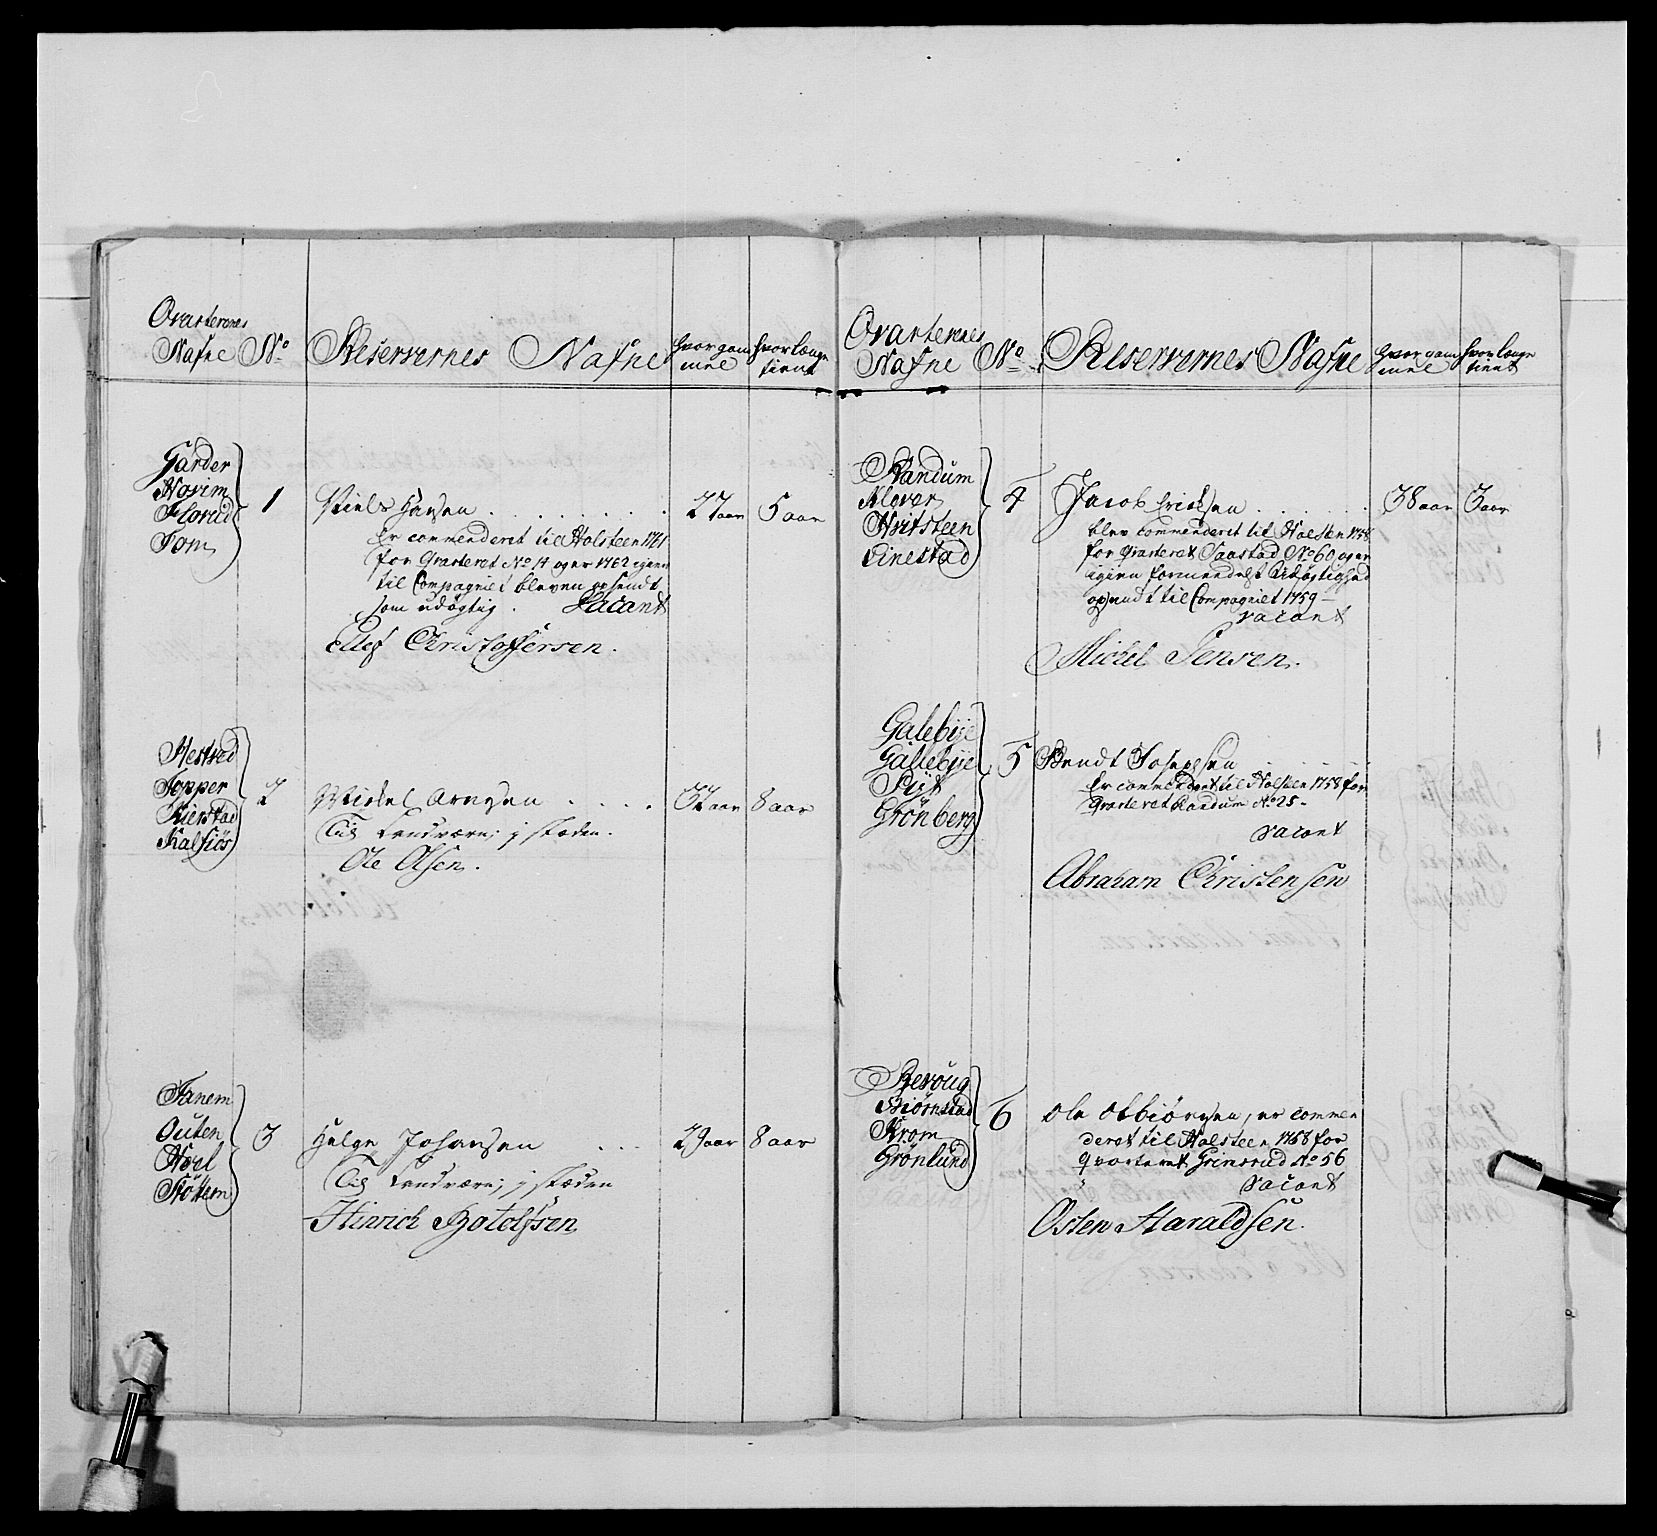 Qvarterenes
Nafne No Reservernes Nafne hvor gam hvor længe
mel tient
Gårder
Novim
Florud
Tom
1 Niels Hansen . . . . . . . 27 aar 5 aar
Er commenderet til Holsteen 1761
for Qvarteret No 14 og er 1762 igien
til Compagniet bleven opsendt
som udögtig. Vacant
Ellef Christoffersen.
Hestved
Topper
Kierstad
Kalsiös
2 Michel Arnesen . . . . 32 aar 8 aar
Til Landværn; i stæden.
Ole Olsen.
Tanem
Outen
Hoel
Stöttem
3 Helge Johansen . . . 29 aar 8 aar
Til Landværn; i stæden
Hinrich Botolfsen
Qvarterenes
Nafne No Reservernes Nafne hvor gam hvor længe
mel tient
Randum
Klover
Hvitsteen
Linestad
4 Jacob Erichsen . . . . . 38 aar 3 aar
blev commenderet til Holsten 1758
for Qvarteret Saastad No 60 og er
igien formedelst Udögtighed
opsendt til Compagniet 1759 —
vacant
Michel Jensen.
Galebye
Gallebye
Sigt
Grönberg
5 Bendt Josepsen . . . . .
Er commendert til Holsten 1758 for
Qvarteret Randum No 25 -
vacant
Abraham Christensen
Revoug
Biörnstad
Krom
Grönlund
6 Ole Asbiörnsen, er commen
deret til Holsteen 1758 for
Qvarteret Grimsrud No 56
Vacant
Østen Haraldsen.